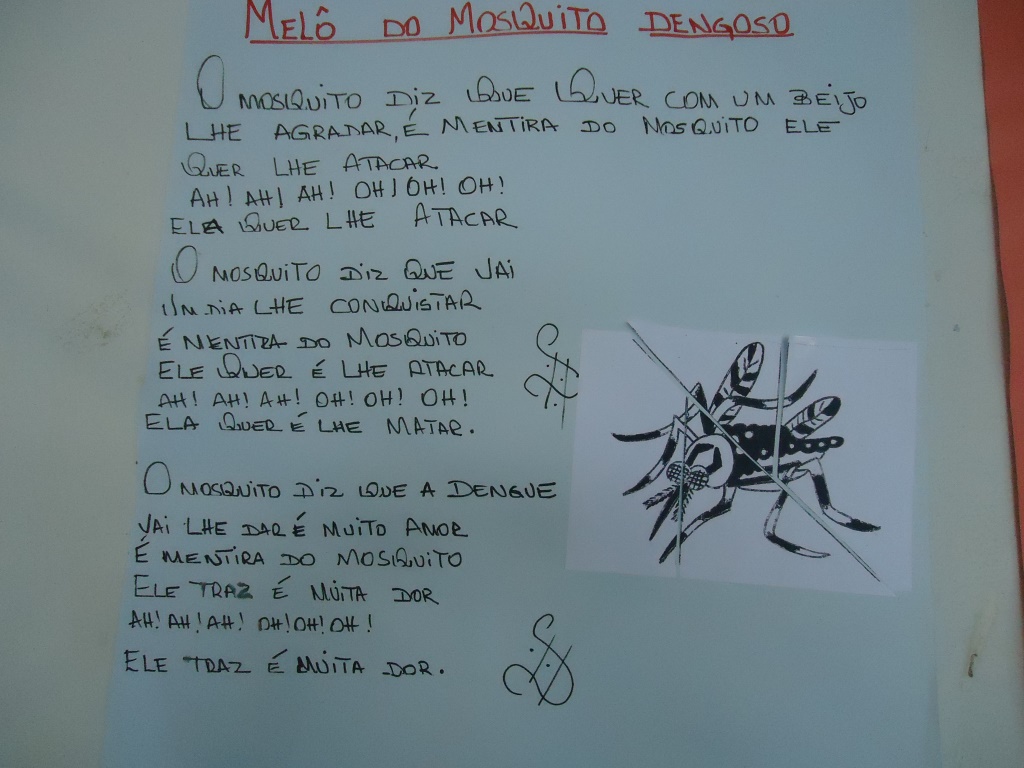 MELÔ DO MOSQUITO DENGOSO
O MOSQUITO DIZ QUE QUER COM UM BEIJO
LHE AGRADAR, É MENTIRA DO MOSQUITO ELE
QUER LHE ATACAR
AH! AH! AH! OH! OH! OH!
ELA QUER LHE ATACAR
O MOSQUITO DIZ QUE VAI
UM DIA LHE CONQUISTAR
É MENTIRA DO MOSQUITO
ELE QUER É LHE ATACAR
AH! AH! AH! OH! OH! OH!
ELA QUER É LHE MATAR.
O MOSQUITO DIZ QUE A DENGUE
VAI LHE DAR É MUITO AMOR
É MENTIRA DO MOSQUITO
ELE TRAZ É MUITA DOR
AH! AH! AH! OH! OH! OH!
ELE TRAZ É MUITA DOR.